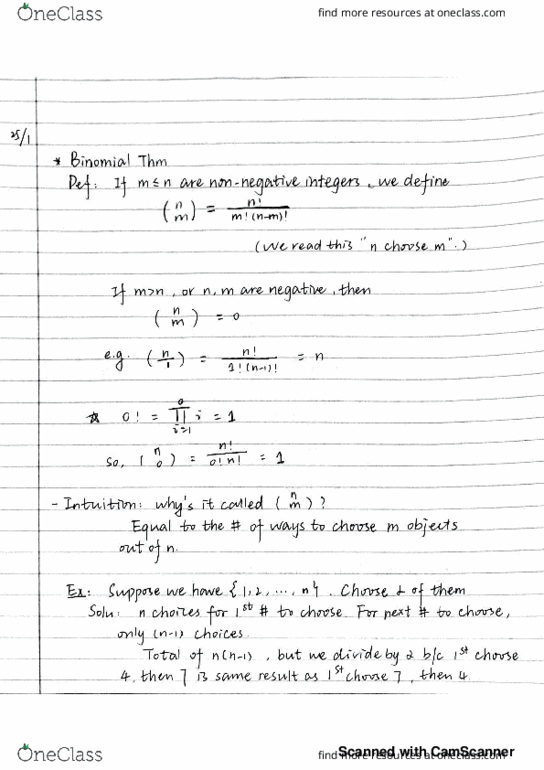 OneClass
find more resources at oneclass.com
25/1
* Binomial Thm
Def: If m ≤ n are non-negative integers, we define
(n m) = n! / m!(n-m)!
(We read this "n choose m".)
If m>n, or n, m are negative, then
(n m) = 0
e.g. (n/1) = n! / 1!(n-1)! = n
* 0! = 0 ∏ i=1 i = 1
So, (n 0) = n! / 0!n! = 1
- Intuition: why's it called (n m)?
Equal to the # of ways to choose m objects
out of n.
Ex: Suppose we have {1,2, ..., n}. Choose 2 of them
Soln: n choices for 1st # to choose. For next # to choose,
only (n-1) choices.
Total of n(n-1), but we divide by 2 b/c 1st choose
4, then 7 is same result as 1st choose 7, then 4.
OneClass
find more resources at oneclass.com
Scanned with CamScanner